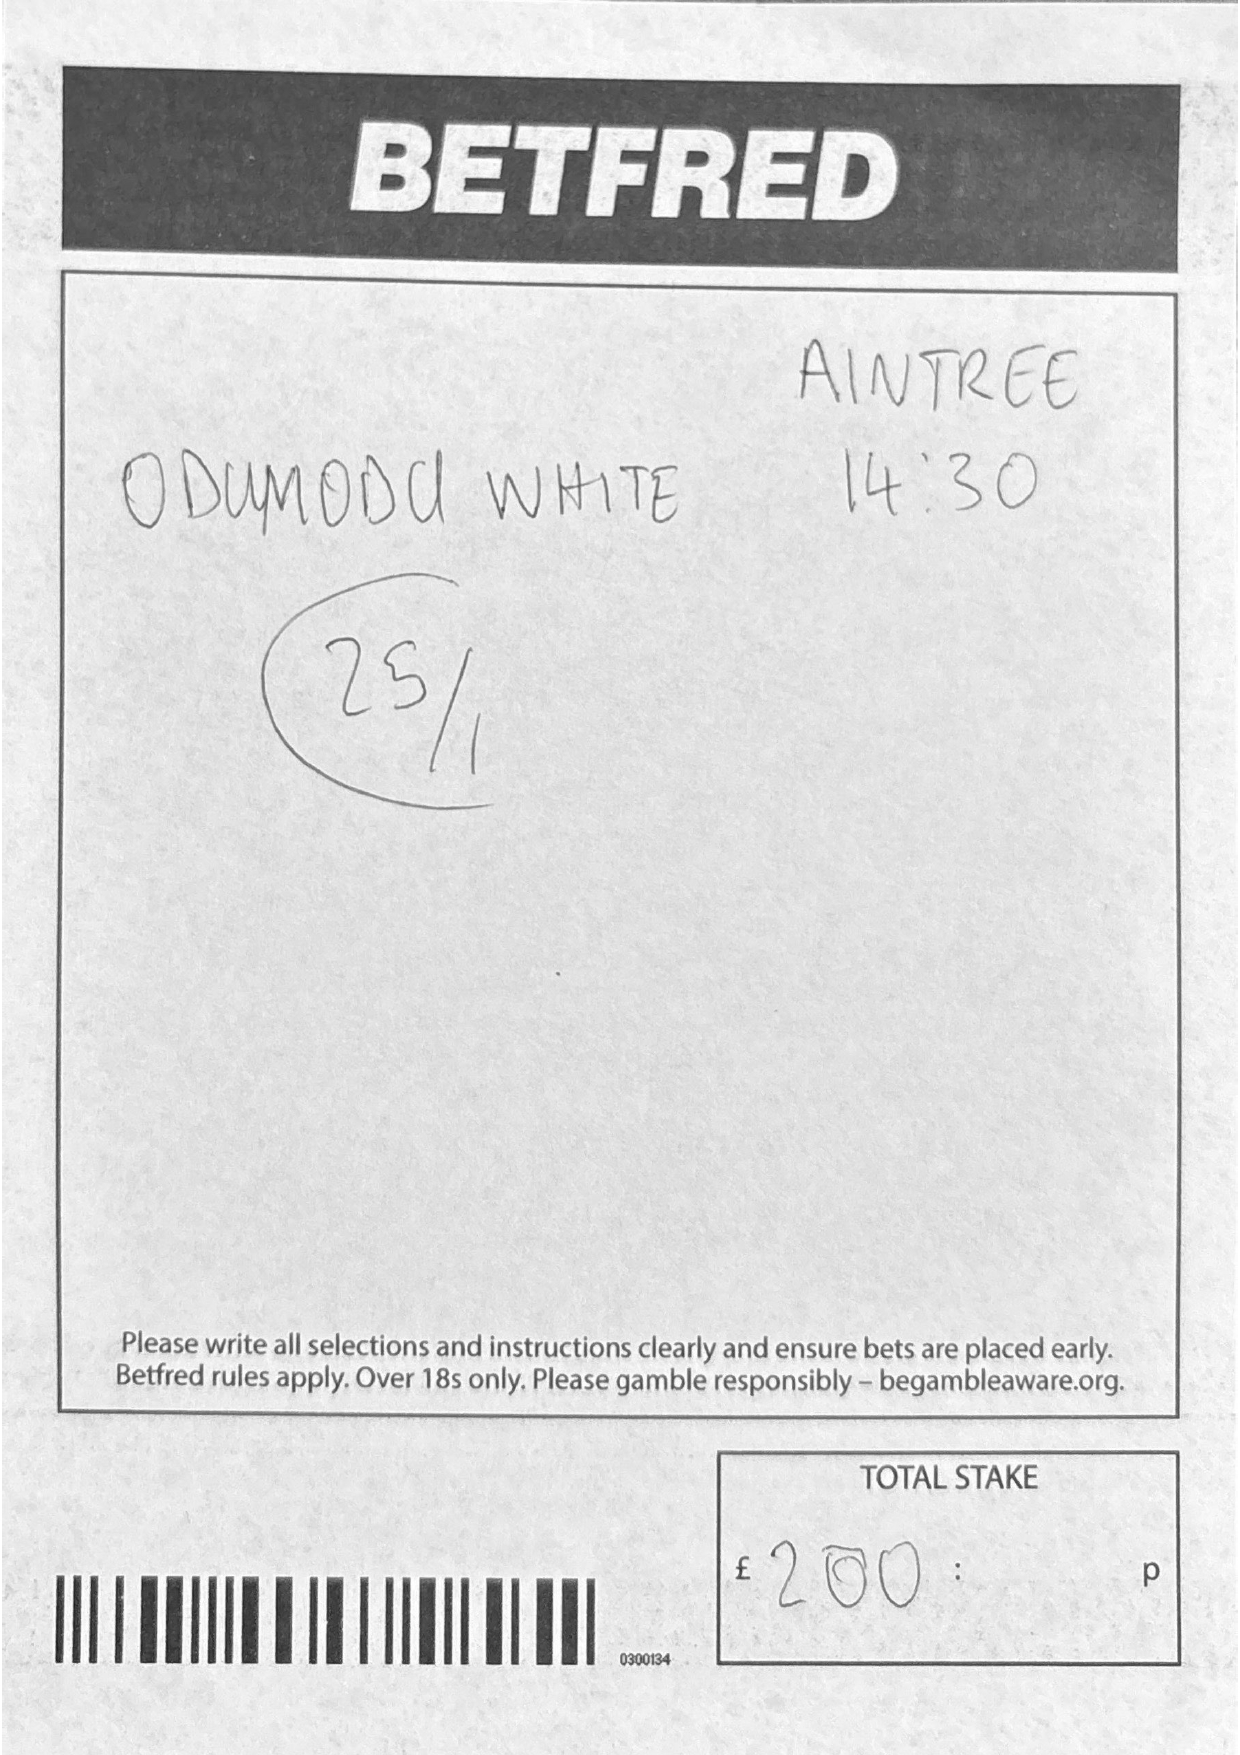 BETFRED
AINTREE
ODUMODU WHITE 14:30
25/1
Please write all selections and instructions clearly and ensure bets are placed early.
Betfred rules apply. Over 18s only. Please gamble responsibly – begambleaware.org.
TOTAL STAKE
£ 200 : p
0300134